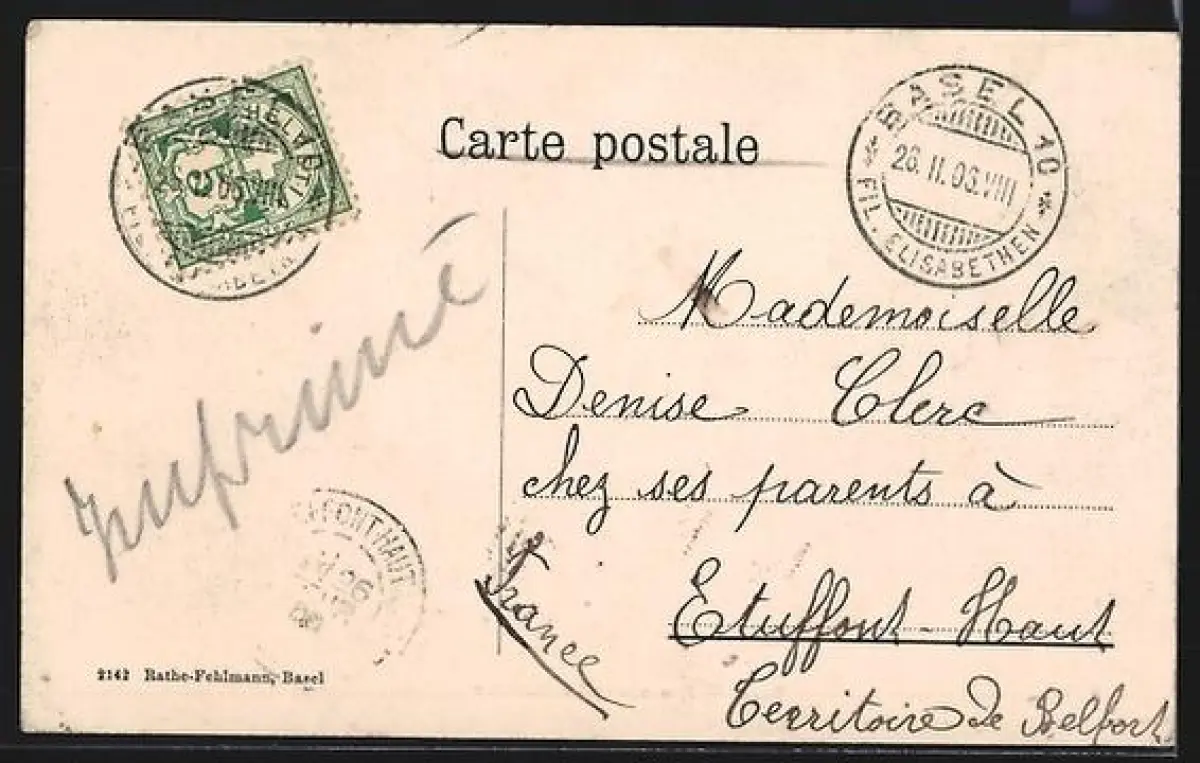 Carte postale
HELVETIA
BASEL 10
26.II.06.VIII
FIL. ELISABETHEN
Imprimé
Mademoiselle
Denise Clerc
chez ses parents à
Etuffont-Haut
Territoire de Belfort
France
FONT HAUT
26
2142 Rathe-Fehlmann, Basel